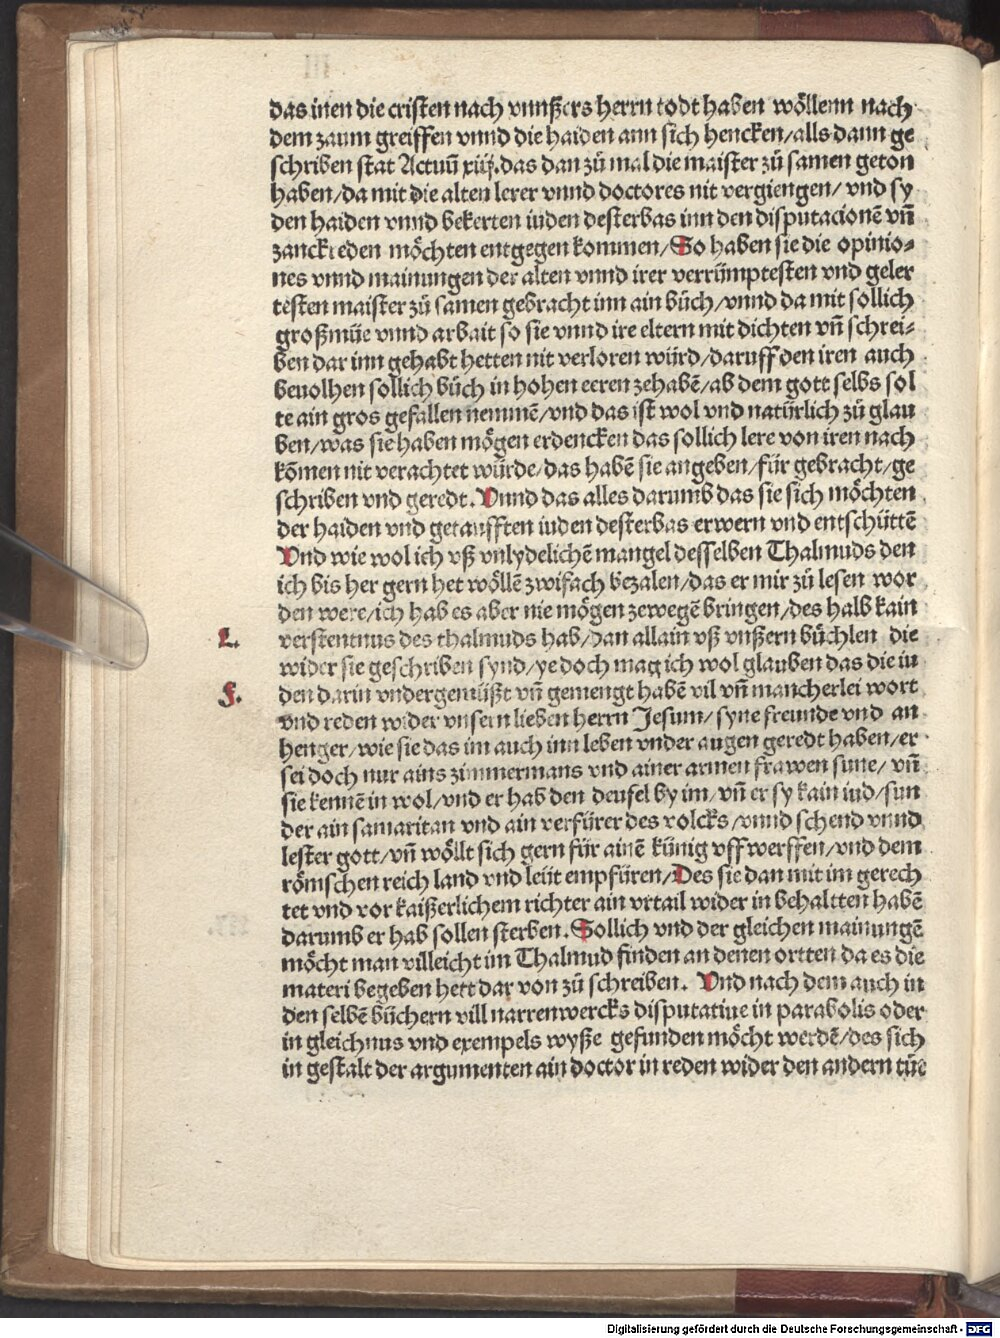 das inen die cristen nach vnnßers herrn todt haben wöllenn nach
dem zaum greiffen vnnd die haiden ann sich hencken/alls dann ge
schriben stat Actuū xiij. das dan zů mal die maister zů samen geton
haben/da mit die alten lerer vnnd doctores nit vergiengen/ vnd sy
den haiden vnnd bekerten iuden desterbas inn den disputacionē vn̄
zanckreden möchten entgegen kommen/So haben sie die opinio⸗
nes vnnd mainungen der alten vnnd irer verrümptesten vnd geler
testen maister zů samen gebracht inn ain bůch/vnnd da mit sollich
großmüe vnnd arbait so sie vnnd ire eltern mit dichten vn̄ schrei⸗
ben dar inn gehabt hetten nit verloren würd/daruff den iren auch
beuolhen sollich bůch in hohen eeren zehabē/ab dem gott selbs sol
te ain gros gefallen nemmē/vnd das ist wol vnd natürlich zů glau
ben/was sie haben mögen erdencken das sollich lere von iren nach
kōmen nit verachtet würde/das habē sie angeben/für gebracht/ge
schriben vnd geredt. Vnnd das alles darumb das sie sich möchten
der haiden vnd getaufften iuden desterbas erwern vnd entschüttē
Vnd wie wol ich vß vnlydelichē mangel desselben Thalmuds den
ich bis her gern het wöllē zwifach bezalen/das er mir zů lesen wor
den were/ich hab es aber nie mögen zewegē bringen/des halb kain
L. verstentnus des thalmuds hab/dan allain vß vnßern büchlen die
wider sie geschriben synd/ye doch mag ich wol glauben das die iu
f. den darin vndergemüßt vn̄ gemengt habē vil vn̄ mancherlei wort
vnd reden wider vnsern lieben herrn Jesum/ syne freunde vnd an
henger/wie sie das im auch inn leben vnder augen geredt haben/er
sei doch nur ains zimmermans vnd ainer armen frawen sune/ vn̄
sie kennē in wol/vnd er hab den deufel by im/vn̄ er sy kain iud/sun
der ain samaritan vnd ain verfürer des volcks/vnnd schend vnnd
lester gott/vn̄ wöllt sich gern für ainē künig vffwerffen/vnd dem
römschen reich land vnd leüt empfüren/Des sie dan mit im gerech
tet vnd vor kaißerlichem richter ain vrtail wider in behaltten habē
darumb er hab sollen sterben. Sollich vnd der gleichen mainungē
möcht man villeicht im Thalmud finden an denen ortten da es die
materi begeben hett dar von zů schreiben. Vnd nach dem auch in
den selbē büchern vill narrenwercks disputatiue in parabolis oder
in gleichnus vnd exempels wyße gefunden möcht werdē/des sich
in gestalt der argumenten ain doctor in reden wider den andern tüe
Digitalisierung gefördert durch die Deutsche Forschungsgemeinschaft - DFG